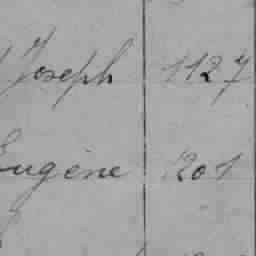 Joseph 1127
Eugène 1201